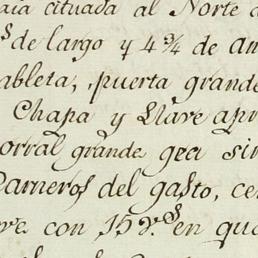 cituada al Norte
s de largo y 4 3/4 de an
ableta, puerta grande
Chapa y Llave apr
orral grande qea sir
Carneros del gasto, ce
con 15 v.s en qua